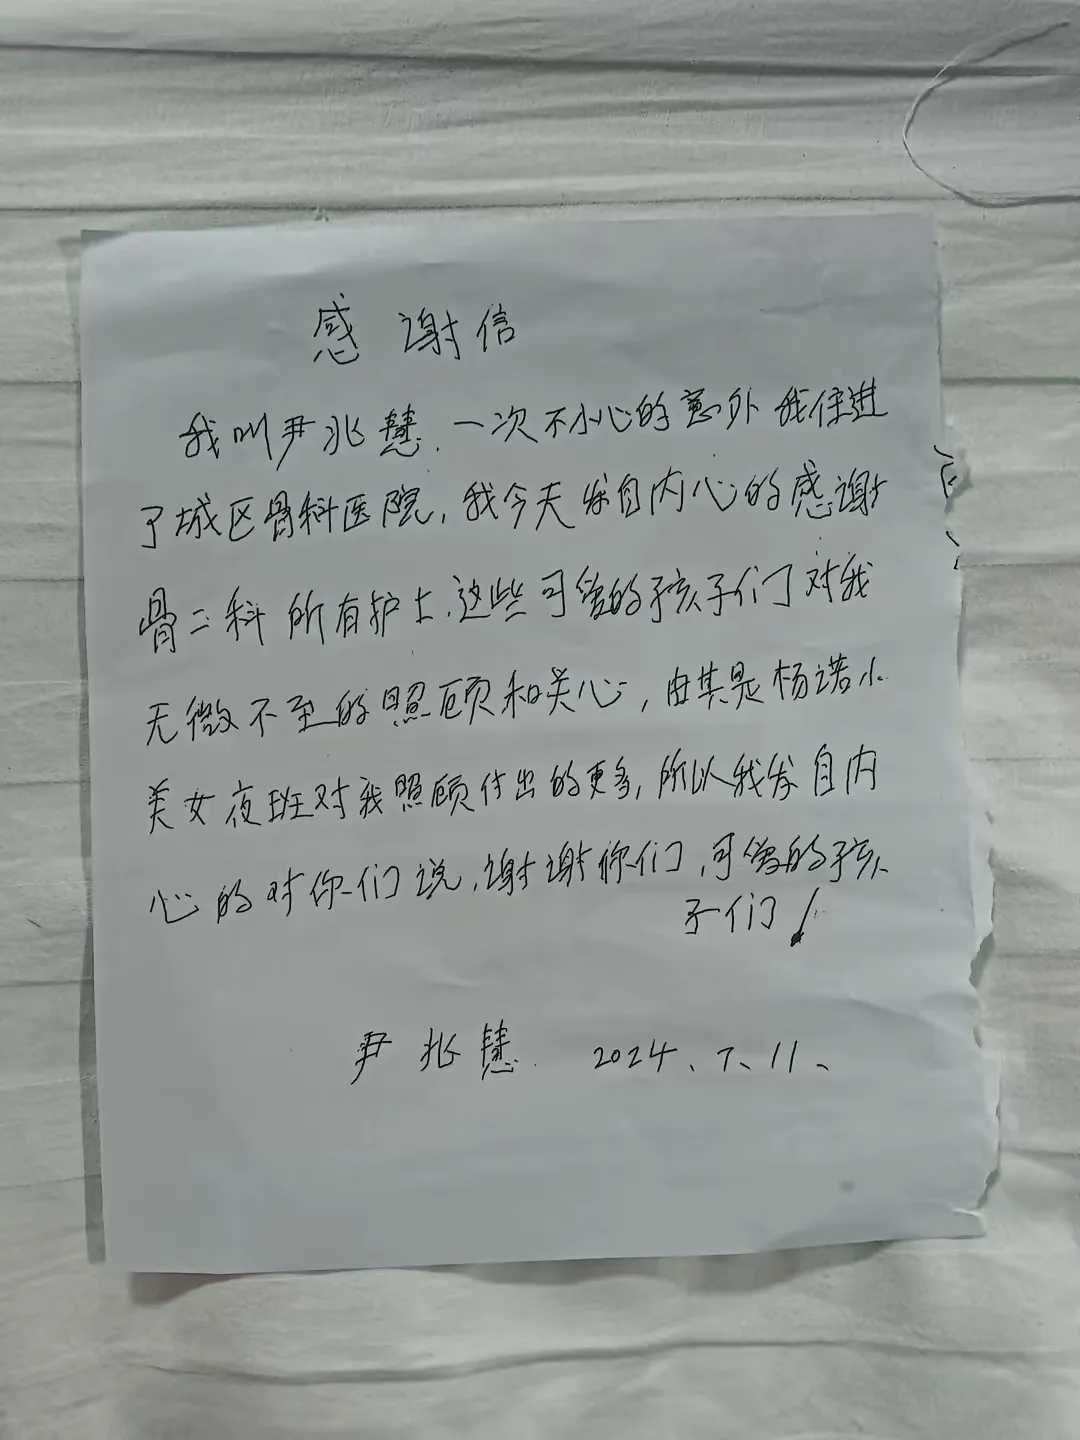 感谢信
我叫尹兆慧.一次不小心的意外我住进
了城区骨科医院,我今天发自内心的感谢
骨二科所有护士.这些可爱的孩子们对我
无微不至的照顾和关心,由其是杨诺小
美女夜班对我照顾付出的更多,所以我发自内
心的对你们说,谢谢你们,可爱的孩
子们!
尹兆慧.2024、7、11、